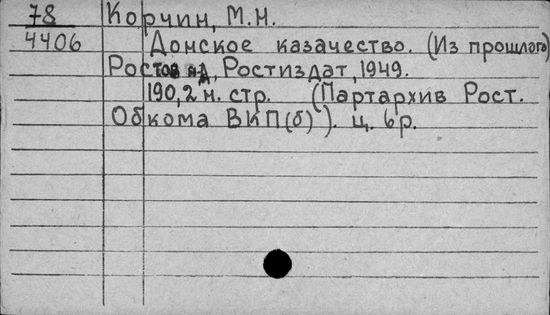 78 Корчин, М.Н.
4406 Донское казачество. (Из прошлого)
Ростов н/Д, Ростиздат, 1949.
190, 2 н. стр. (Партархив Рост.
Обкома ВКП(б)). ц. 6 р.